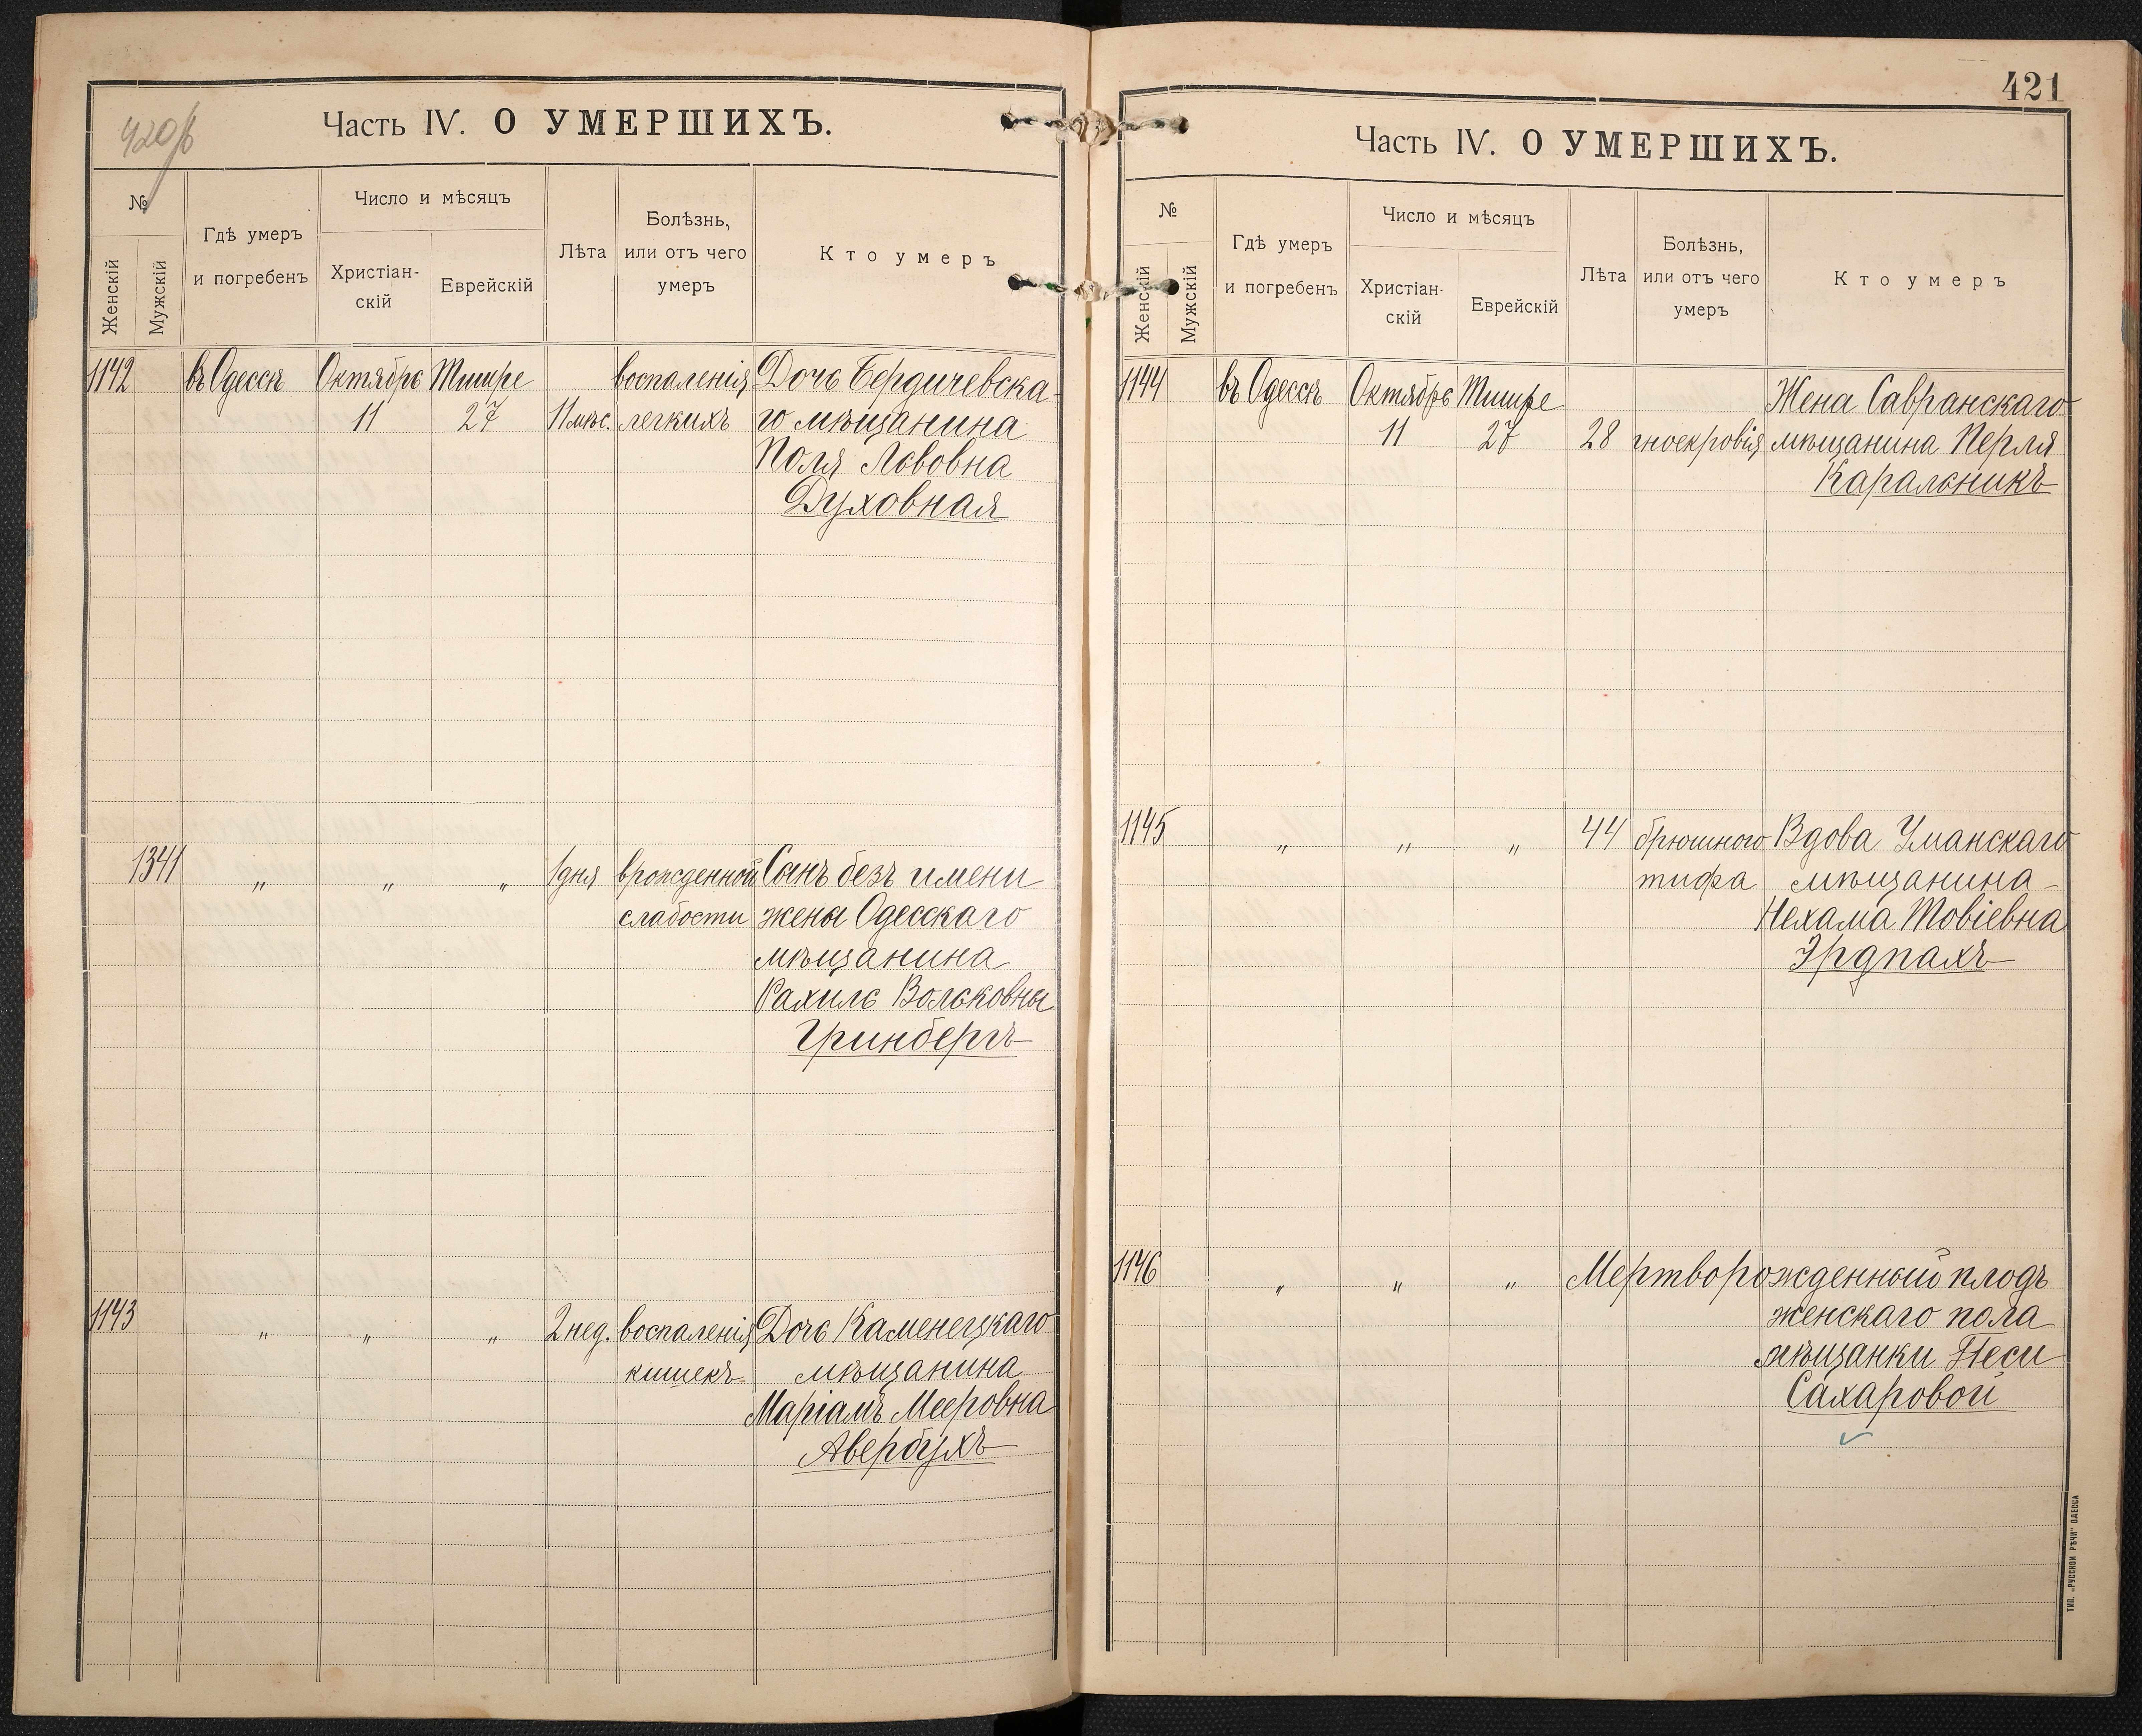 420/б
Часть IV. О УМЕРШИХЪ.
№
Женскій
Мужскій
Гдѣ умеръ
и погребенъ
Число и мѣсяцъ
Христіан-
скій
Еврейскій
Лѣта
Болѣзнь,
или отъ чего
умеръ
Кто умеръ
1142 въ Одессѣ Октябрь Тишре воспаленія Дочь Бердичевска-
11 27 11 мѣс. легкихъ го мѣщанина
Поля Львовна
Духовная
1341 " " " 1 дня врожденной Сынъ безъ имени
слабости жены Одесскаго
мѣщанина
Рахиль Вольковны
Гринбергъ
1143 " " " 2 нед. воспаленія Дочь Каменецкаго
кишекъ мѣщанина
Маріамъ Мееровна
Авербухъ
421
Часть IV. О УМЕРШИХЪ.
№
Женскій
Мужскій
Гдѣ умеръ
и погребенъ
Число и мѣсяцъ
Христіан-
скій
Еврейскій
Лѣта
Болѣзнь,
или отъ чего
умеръ
Кто умеръ
1144 въ Одессѣ Октябрь Тишре Жена Савранскаго
11 27 28 гноекровія мѣщанина Перля
Каральникъ
1145 " " " 44 брюшного Вдова Уманскаго
тифа мѣщанина
Нехама Товіевна
Эрдпахъ
1146 " " " Мертворожденный плодъ
женскаго пола
мѣщанки Песи
Сахаровой
ТИП. „РУССКОЙ РѢЧИ" ОДЕССА